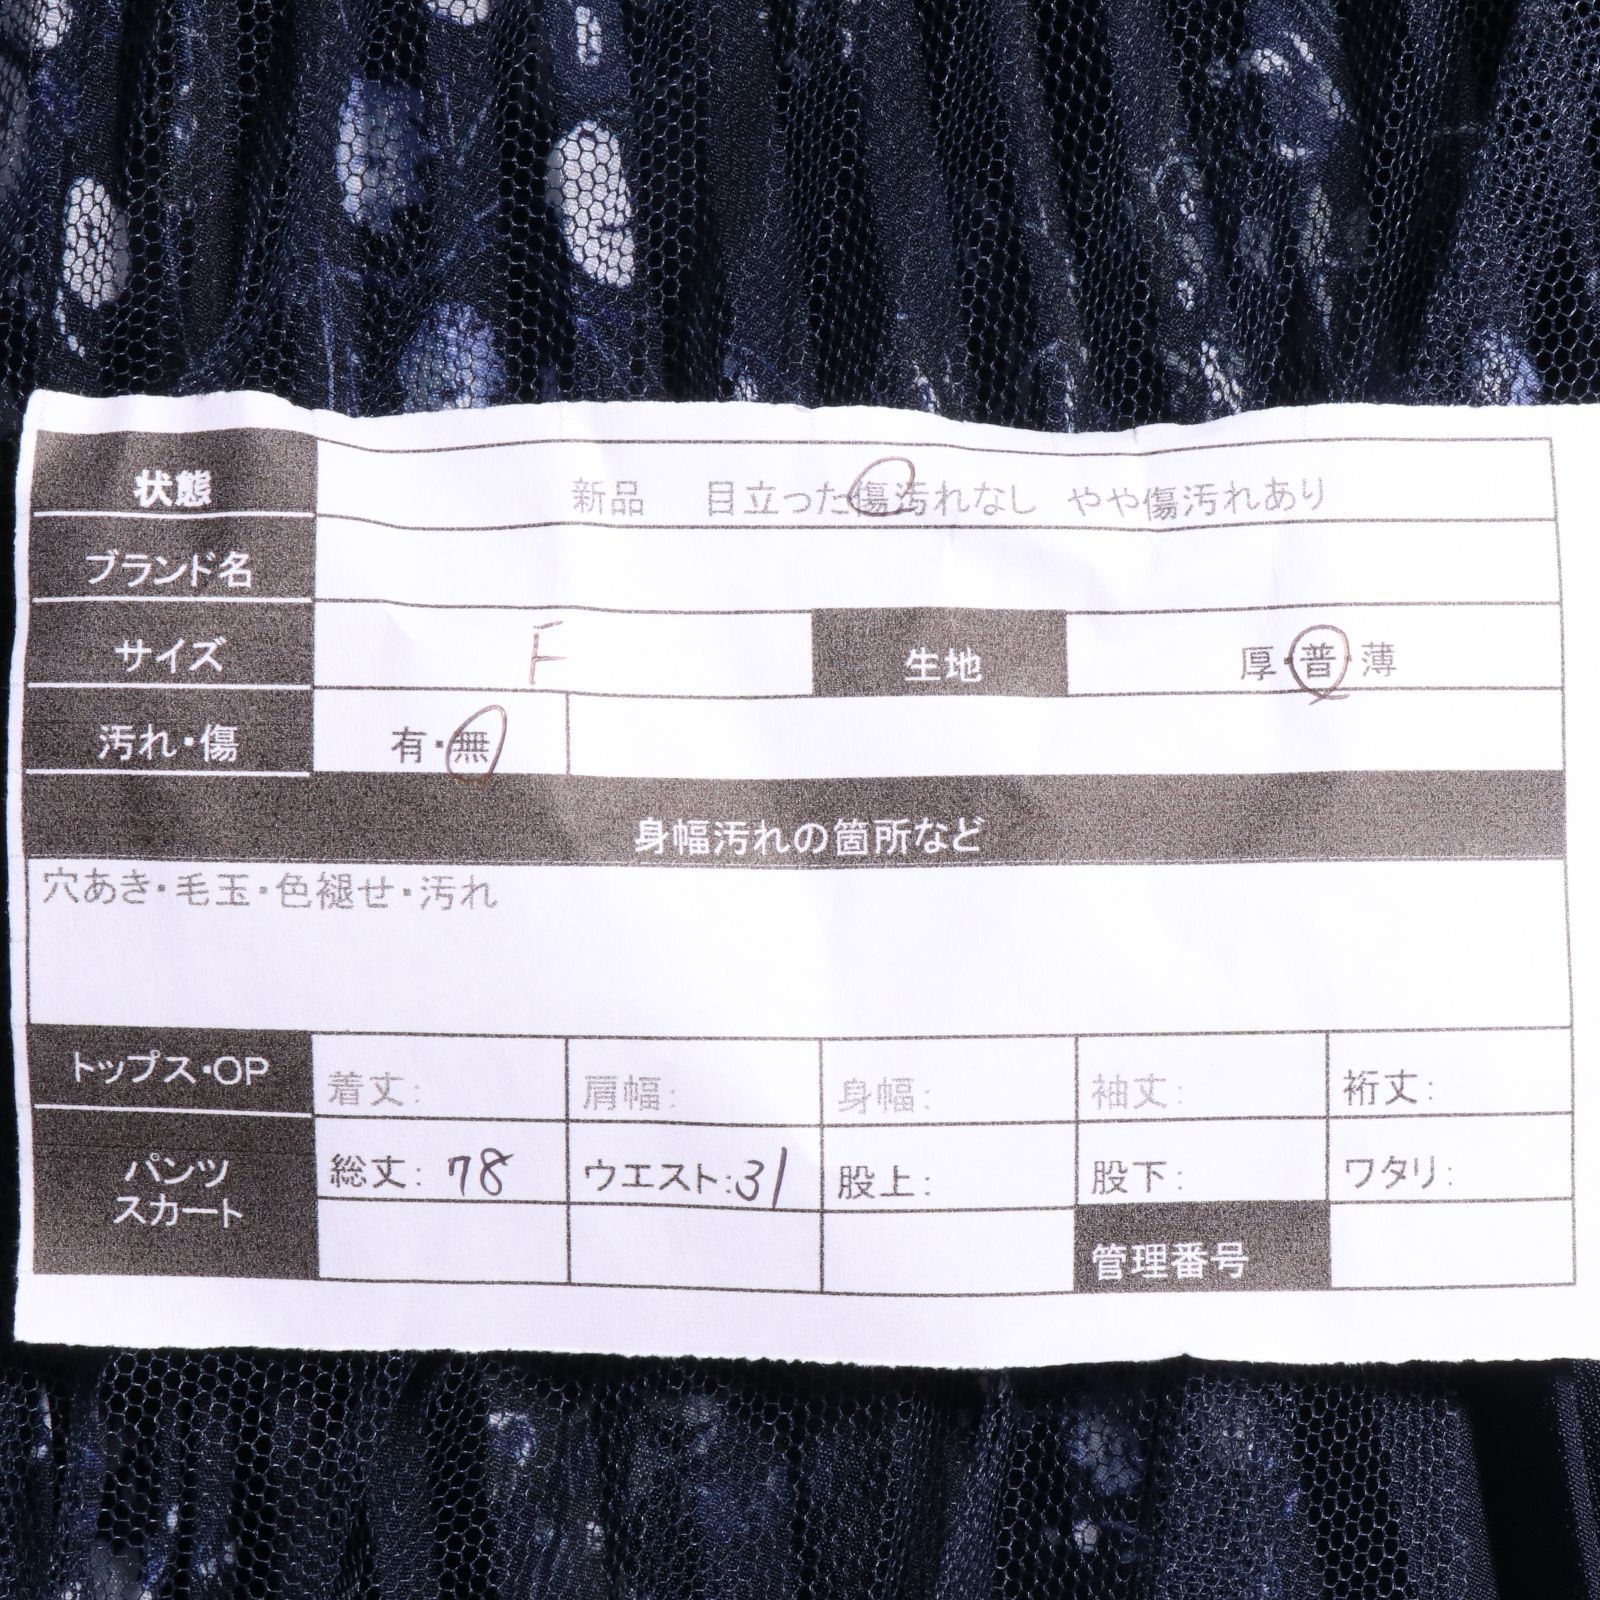 状態 新品 目立った傷汚れなし やや傷汚れあり
ブランド名
サイズ F 生地 厚・普・薄
汚れ・傷 有・無
身幅汚れの箇所など
穴あき・毛玉・色褪せ・汚れ
トップス・OP 着丈: 肩幅: 身幅: 袖丈: 裄丈:
パンツ
スカート
総丈: 78 ウエスト:31 股上: 股下: ワタリ:
管理番号